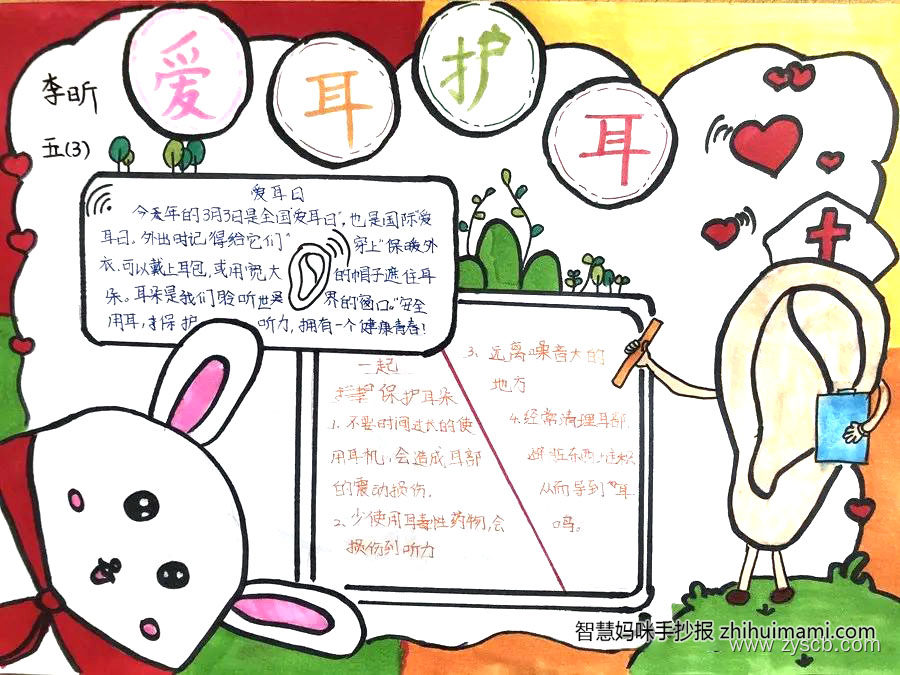 爱耳护耳
李昕
五(3)
爱耳日
今天年的3月3日是全国"爱耳日",也是国际"爱
耳日。外出时记得给它们"穿上"保暖外
衣,可以戴上耳包,或用宽大的帽子遮住耳
朵。耳朵是我们聆听世界的"窗口"安全
用耳,才保护听力,拥有一个健康青春!
一起
保护耳朵
1、不要时间过长的使
用耳机,会造成耳部
的震动损伤。
2、少使用耳毒性药物,会
损伤到听力
3、远离噪音大的
地方
4、经常清理耳部,
东西
从而导到"耳
鸣。
智慧妈咪手抄报 zhihuimami.com
www.zyscb.com